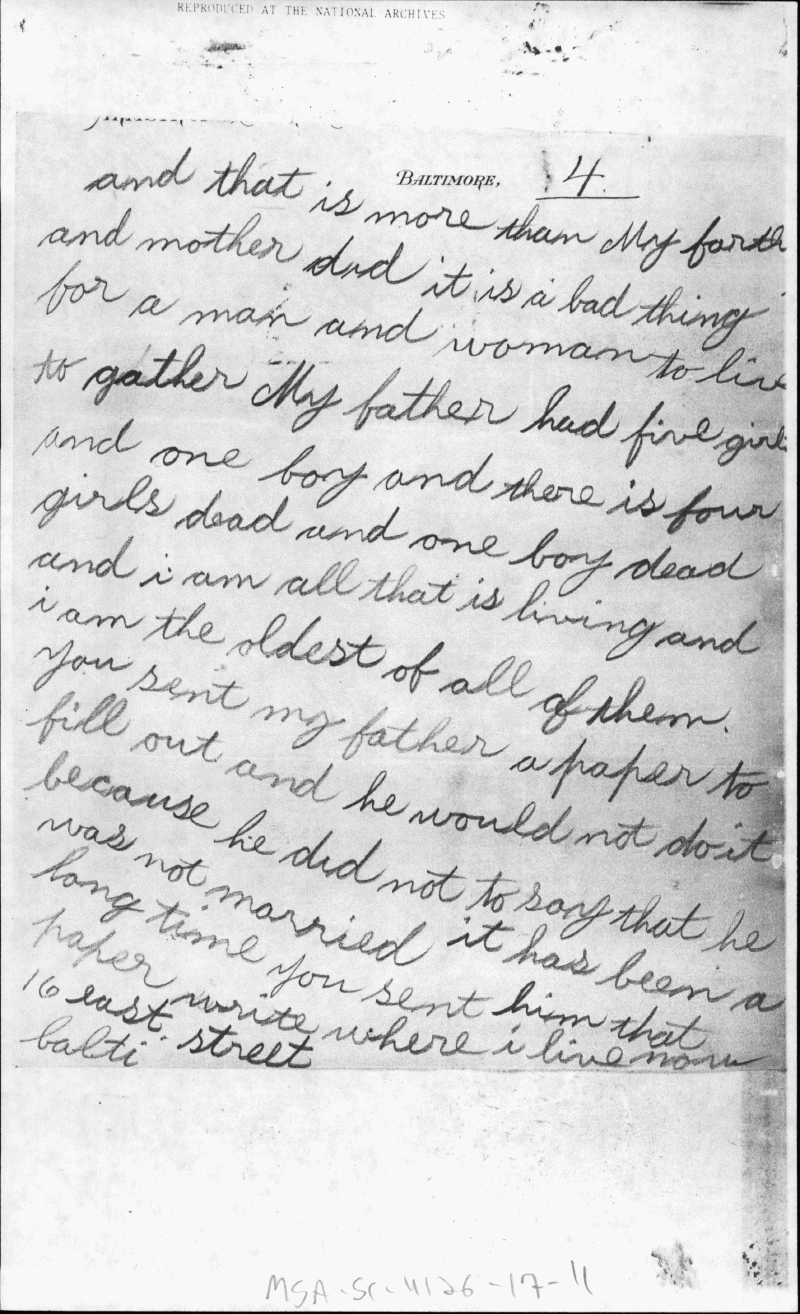 REPRODUCED AT THE NATIONAL ARCHIVES
BALTIMORE, 4
and that is more than My farth
and mother did it is a bad thing
for a man and woman to live
to gather My father had five girls
and one boy and there is four
girls dead and one boy dead
and i am all that is living and
i am the oldest of all of them.
you sent my father a paper to
fill out and he would not do it
because he did not to say that he
was not married it has been a
long time you sent him that
paper write where i live now
16 east street
balti
MSA-SC-4126-17-11